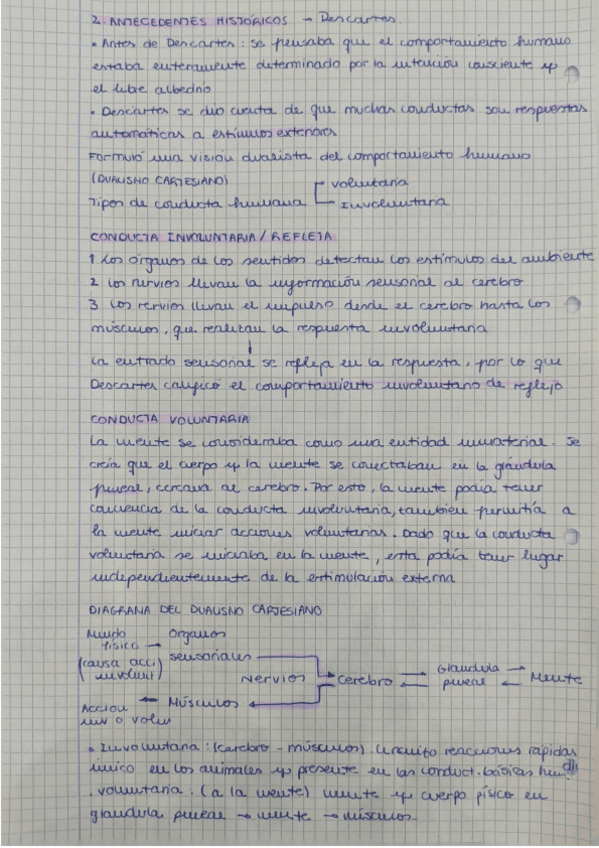 2. ANTECEDENTES HISTÓRICOS → Descartes
• Antes de Descartes: se pensaba que el comportamiento humano
estaba enteramente determinado por la intención consciente y
el libre albedrío
• Descartes se dio cuenta de que muchas conductas son respuestas
automáticas a estímulos externos
Formuló una visión dualista del comportamiento humano
(DUALISMO CARTESIANO)
Tipos de conducta humana
voluntaria
Involuntaria
CONDUCTA INVOLUNTARIA / REFLEJA
1 Los órganos de los sentidos detectan los estímulos del ambiente
2 Los nervios llevan la información sensorial al cerebro
3 Los nervios llevan el impulso desde el cerebro hasta los
músculos, que realizan la respuesta involuntaria
↓
La entrada sensorial se refleja en la respuesta, por lo que
Descartes calificó el comportamiento involuntario de reflejo
CONDUCTA VOLUNTARIA
La mente se consideraba como una entidad inmaterial. Se
creía que el cuerpo y la mente se conectaban en la glándula
pineal, cercana al cerebro. Por esto, la mente podía tener
conciencia de la conducta involuntaria, también permitía a
la mente iniciar acciones voluntarias. Dado que la conducta
voluntaria se iniciaba en la mente, esta podía tener lugar
independientemente de la estimulación externa
DIAGRAMA DEL DUALISMO CARTESIANO
Mundo físico → Organos sensoriales
(causa acci involunt)
Nervios
Cerebro
Glandula pineal
Mente
Accion inv o volu ← Músculos
• Involuntaria: (cerebro - músculos). Circuito reacciones rápidas
único en los animales y presente en las conduct. básicas hum
. voluntaria: (a la mente) mente y cuerpo físico en
glandula pineal → mente → músculos.